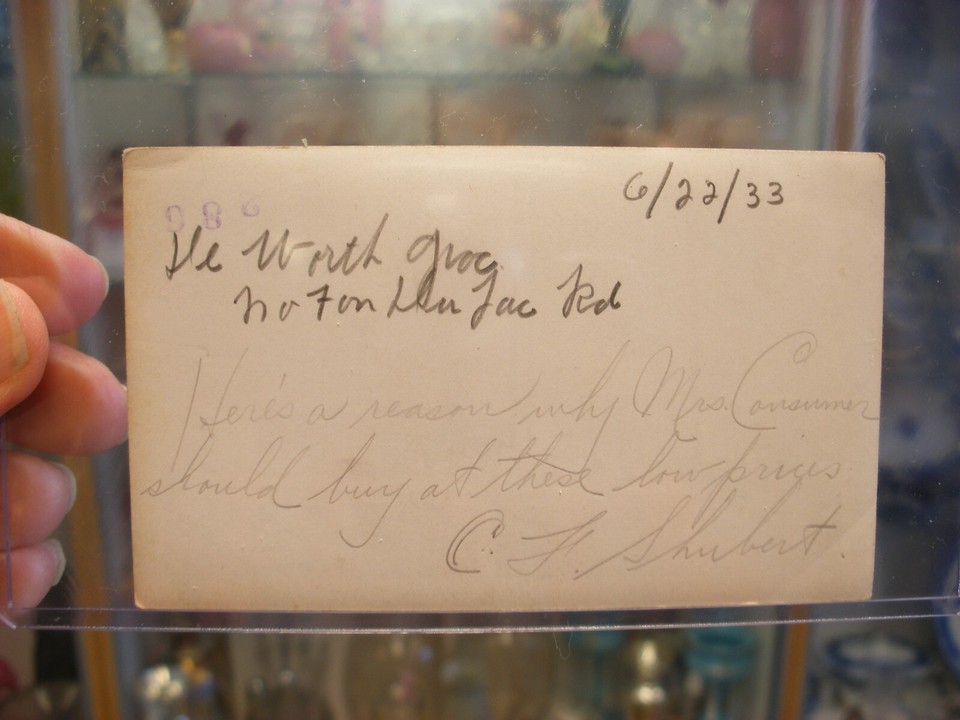 6/22/33
986
De Worth Groc.
No Fon Du Lac Rd
Here's a reason why Mrs. Consumer
should buy at these low prices
C. F. Shubert.